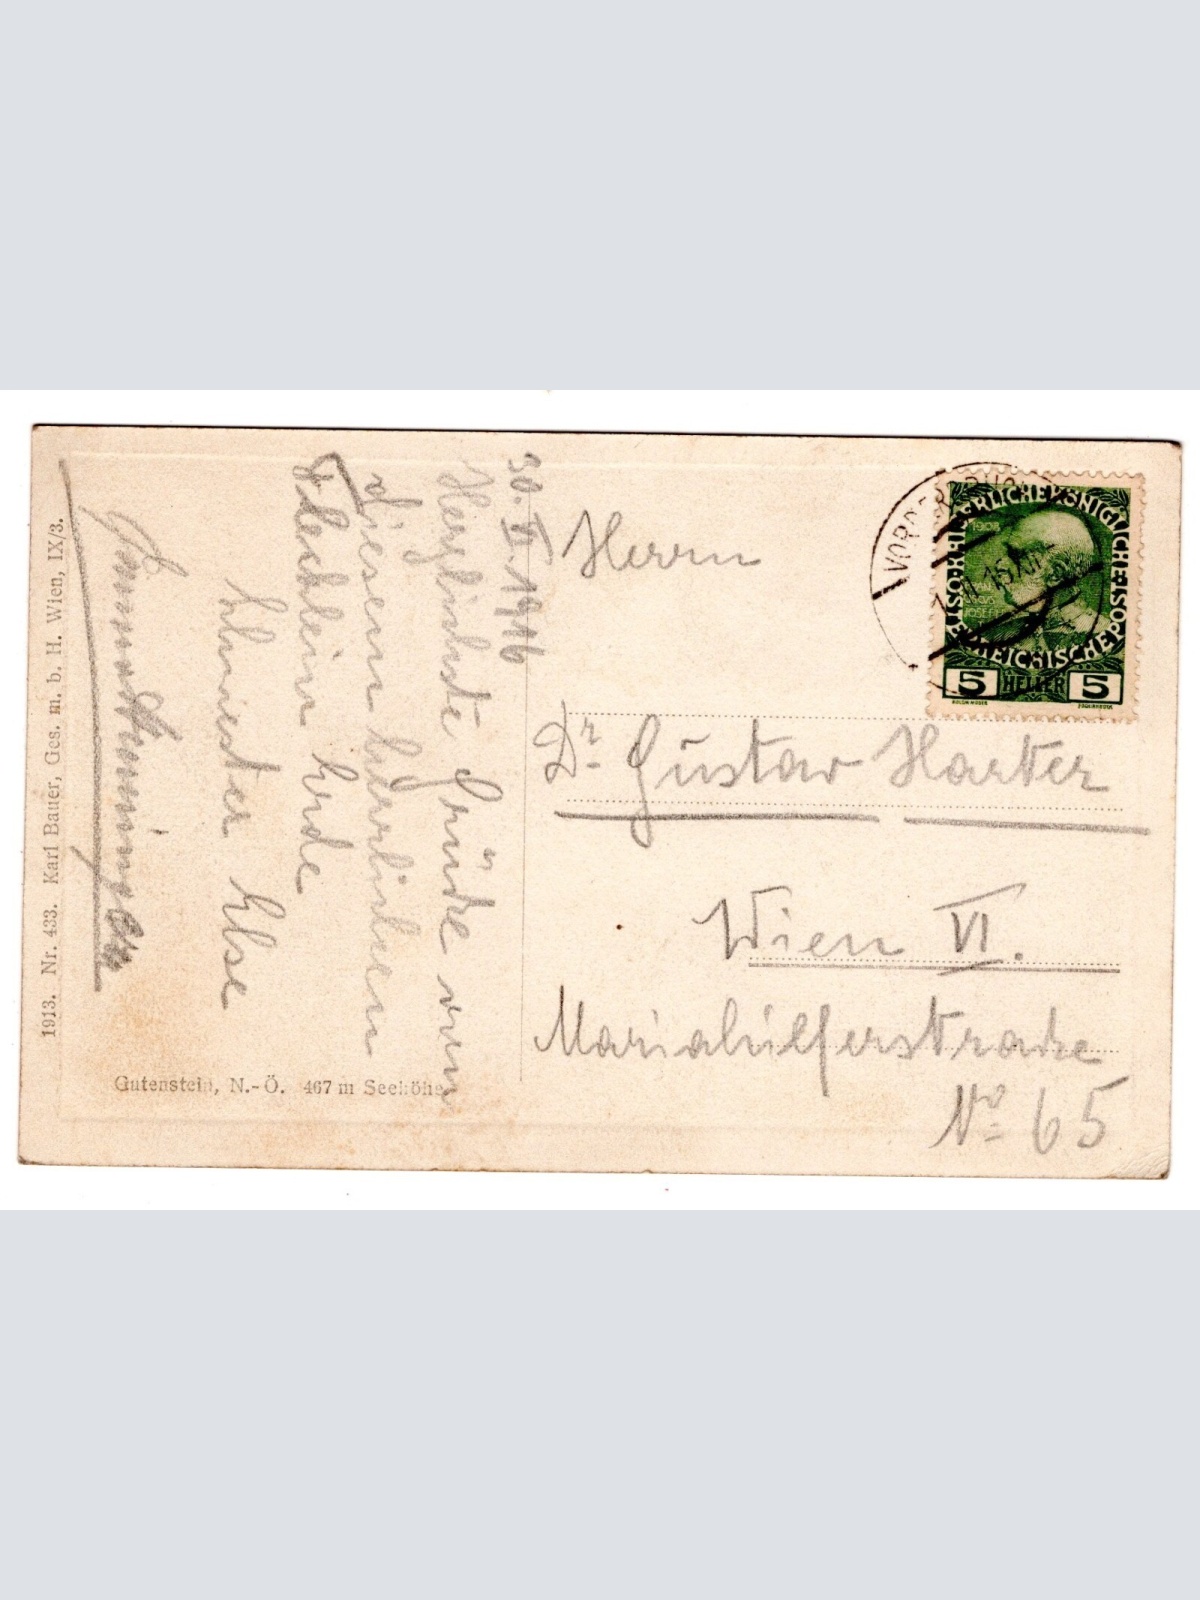 30. VI. 1916
Herzlichste Grüße von
diesem herrlichen
Fleckchen Erde
Else
Herrn
Dr. Gustav Harter
Wien VI.
Mariahilferstraße
No 65
Gutenstein, N.-Ö. 467 m Seehöhe
1913. Nr. 433. Karl Bauer, Ges. m. b. H. Wien, IX/3.
KAISERLICHE KÖNIGLICHE
ÖSTERREICHISCHE POST
1908
5 HELLER 5